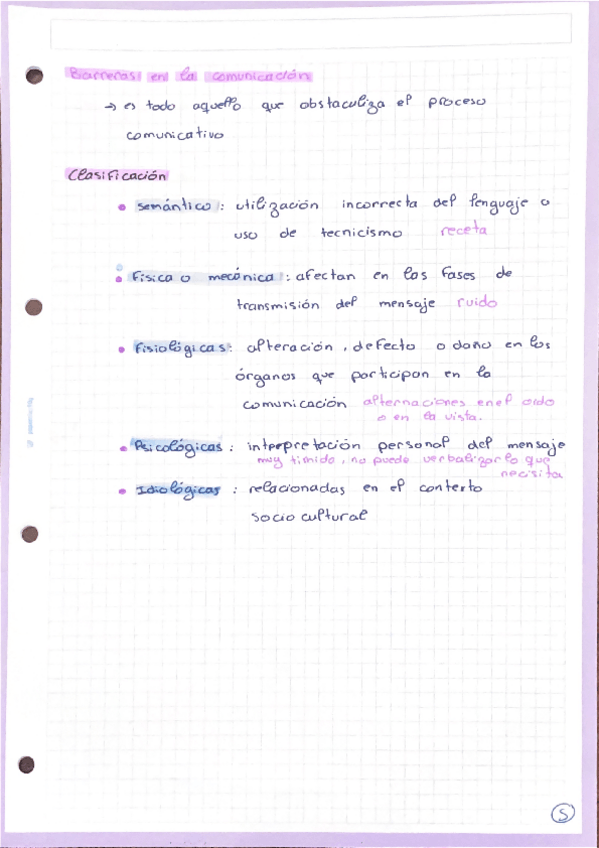 Barreras en la comunicación
→ es todo aquello que obstaculiza el proceso
comunicativo
Clasificación
• semántico: utilización incorrecta del lenguaje o
uso de tecnicismo receta
• Física o mecánica: afectan en las fases de
transmisión del mensaje ruido
• Fisiológicas: alteración, defecto o daño en los
órganos que participan en la
comunicación alternaciones en el oido
o en la vista.
• Psicológicas: interpretación personal del mensaje
muy timido, no puede verbalizar lo que
necisita
• Idiológicas: relacionadas en el contexto
socio cultural
5